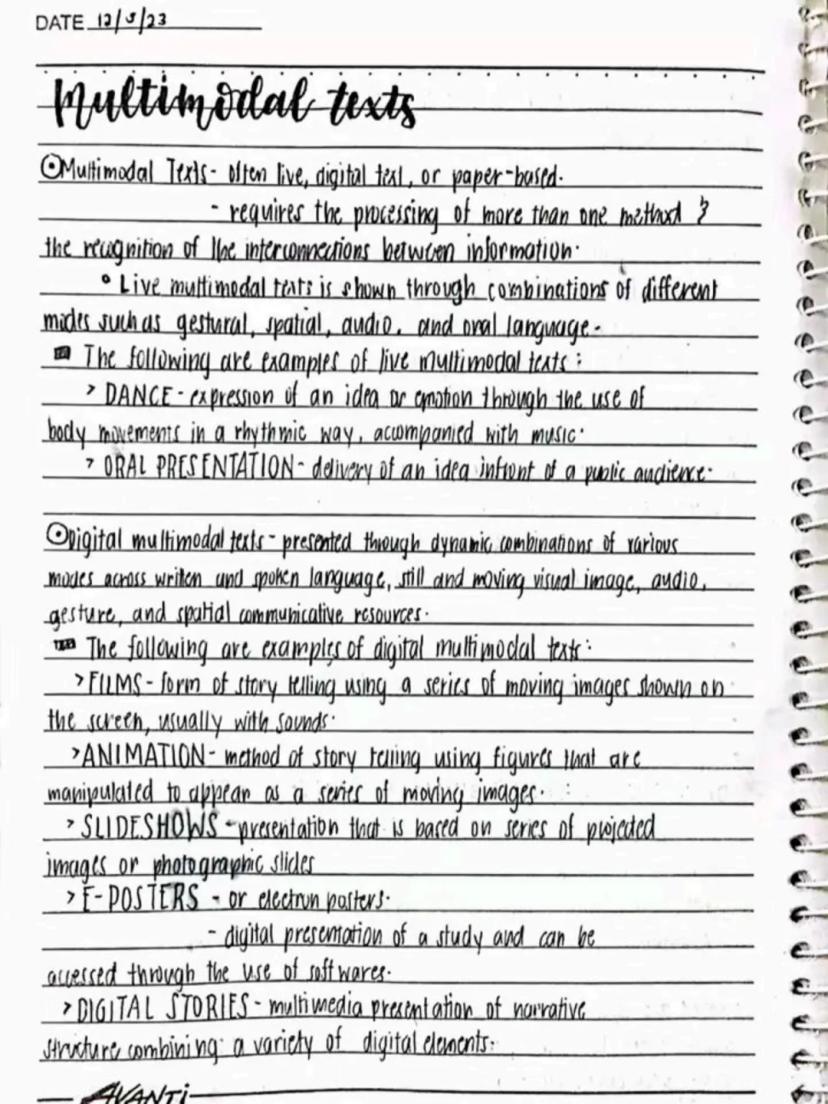 DATE 12/5/23
Multimodal texts
Multimodal Texts- often live, digital text, or paper-based.
- requires the processing of more than one method &
the recognition of the interconnections between information.
° Live multimodal texts is shown through combinations of different
modes such as gestural, spatial, audio, and oral language.
The following are examples of live multimodal texts:
> DANCE - expression of an idea or emotion through the use of
body movements in a rhythmic way, accompanied with music.
> ORAL PRESENTATION- delivery of an idea infront of a public audience.
Digital multimodal texts- presented through dynamic combinations of various
modes across written and spoken language, still and moving visual image, audio,
gesture, and spatial communicative resources.
The following are examples of digital multimodal texts:
> FILMS - form of story telling using a series of moving images shown on
the screen, usually with sounds.
> ANIMATION- method of story telling using figures that are
manipulated to appear as a series of moving images.
> SLIDESHOWS -presentation that is based on series of projected
images or photographic slides
> E-POSTERS - or electron posters.
- digital presentation of a study and can be
accessed through the use of softwares.
> DIGITAL STORIES - multimedia presentation of narrative
structure combining a variety of digital elements.
AVANTi